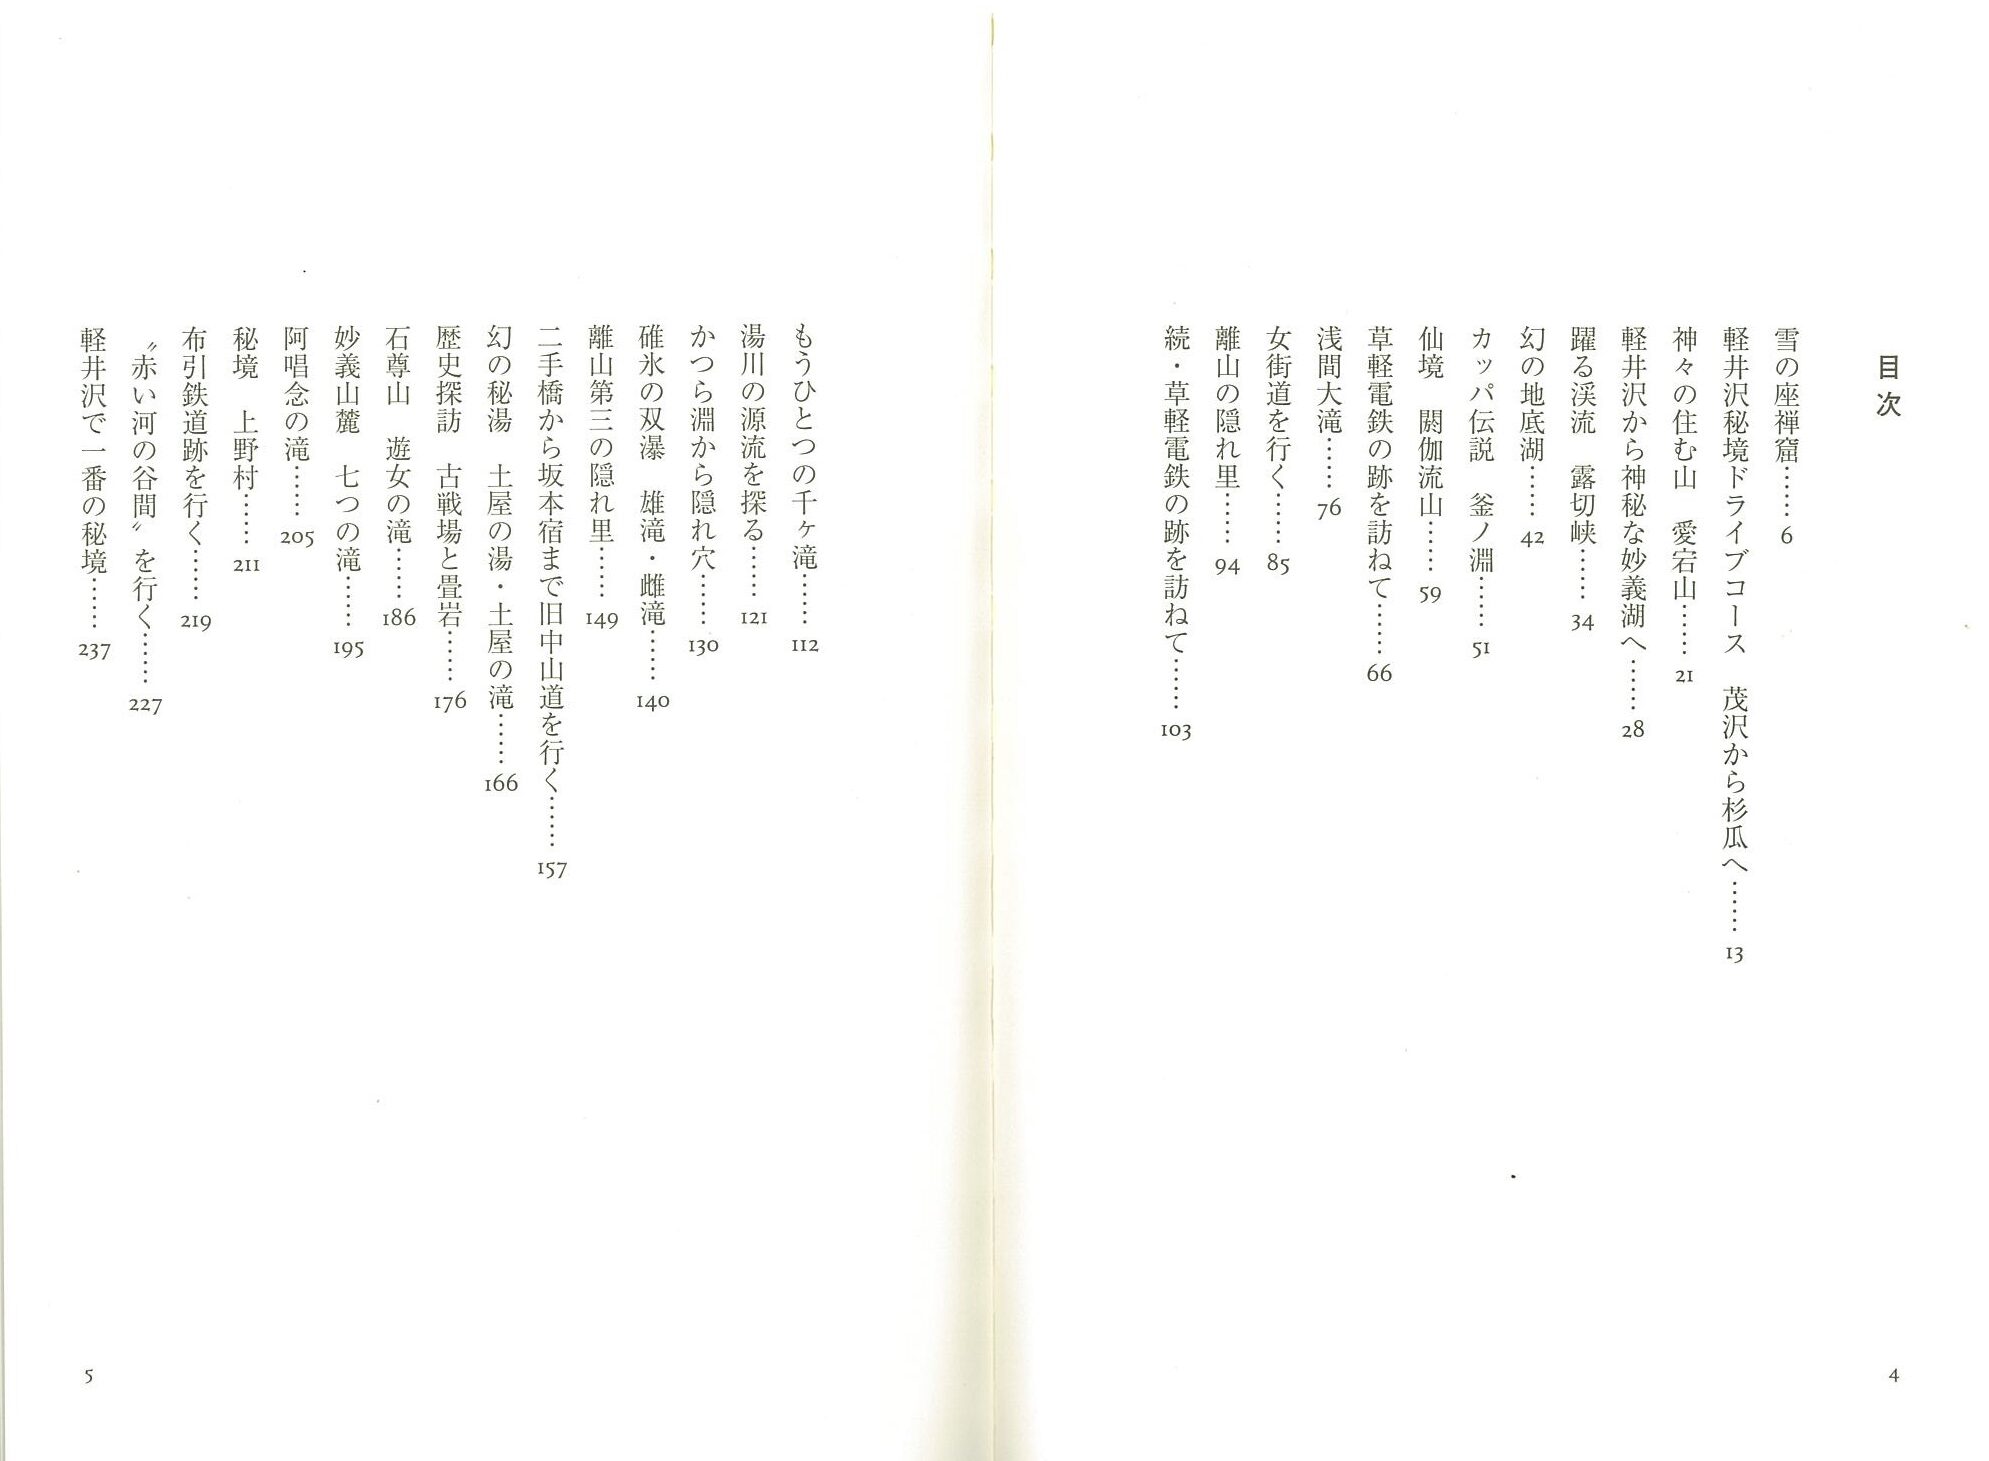 目次
雪の座禅窟……6
軽井沢秘境ドライブコース　茂沢から杉瓜へ……13
神々の住む山　愛宕山……21
軽井沢から神秘な妙義湖へ……28
躍る渓流　露切峡……34
幻の地底湖……42
カッパ伝説　釜ノ淵……51
仙境　閼伽流山……59
草軽電鉄の跡を訪ねて……66
浅間大滝……76
女街道を行く……85
離山の隠れ里……94
続・草軽電鉄の跡を訪ねて……103
4
もうひとつの千ヶ滝……112
湯川の源流を探る……121
かつら淵から隠れ穴……130
碓氷の双瀑　雄滝・雌滝……140
離山第三の隠れ里……149
二手橋から坂本宿まで旧中山道を行く……157
幻の秘湯　土屋の湯・土屋の滝……166
歴史探訪　古戦場と畳岩……176
石尊山　遊女の滝……186
妙義山麓　七つの滝……195
阿唱念の滝……205
秘境　上野村……211
布引鉄道跡を行く……219
〝赤い河の谷間〟を行く……227
軽井沢で一番の秘境……237
5